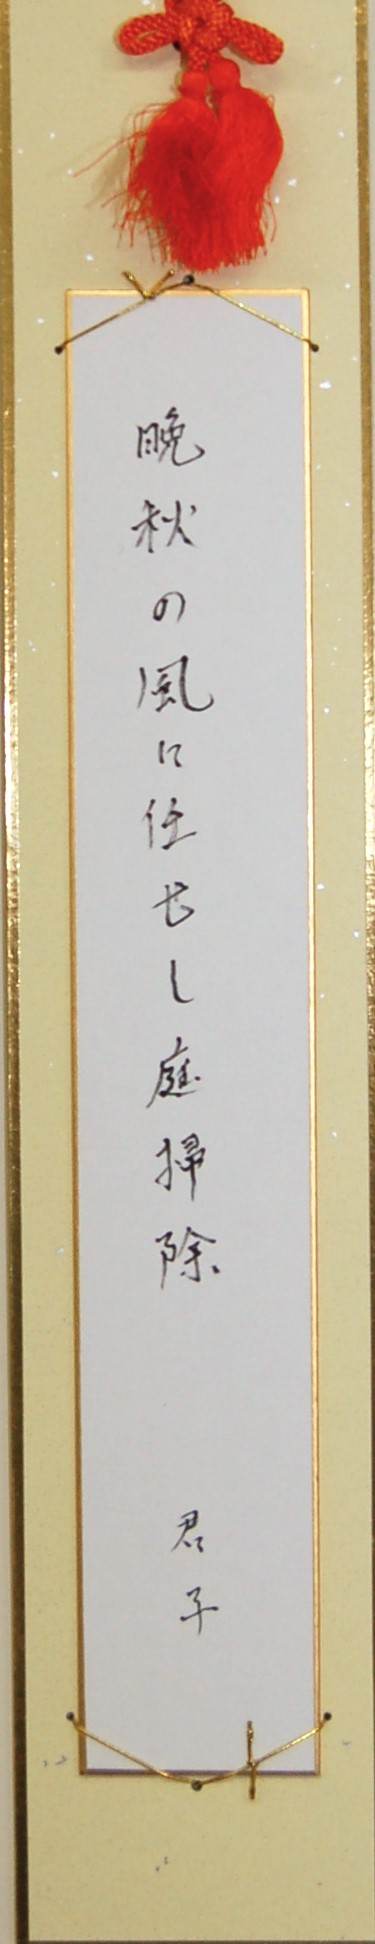 晩秋の風に任せし庭掃除
君子